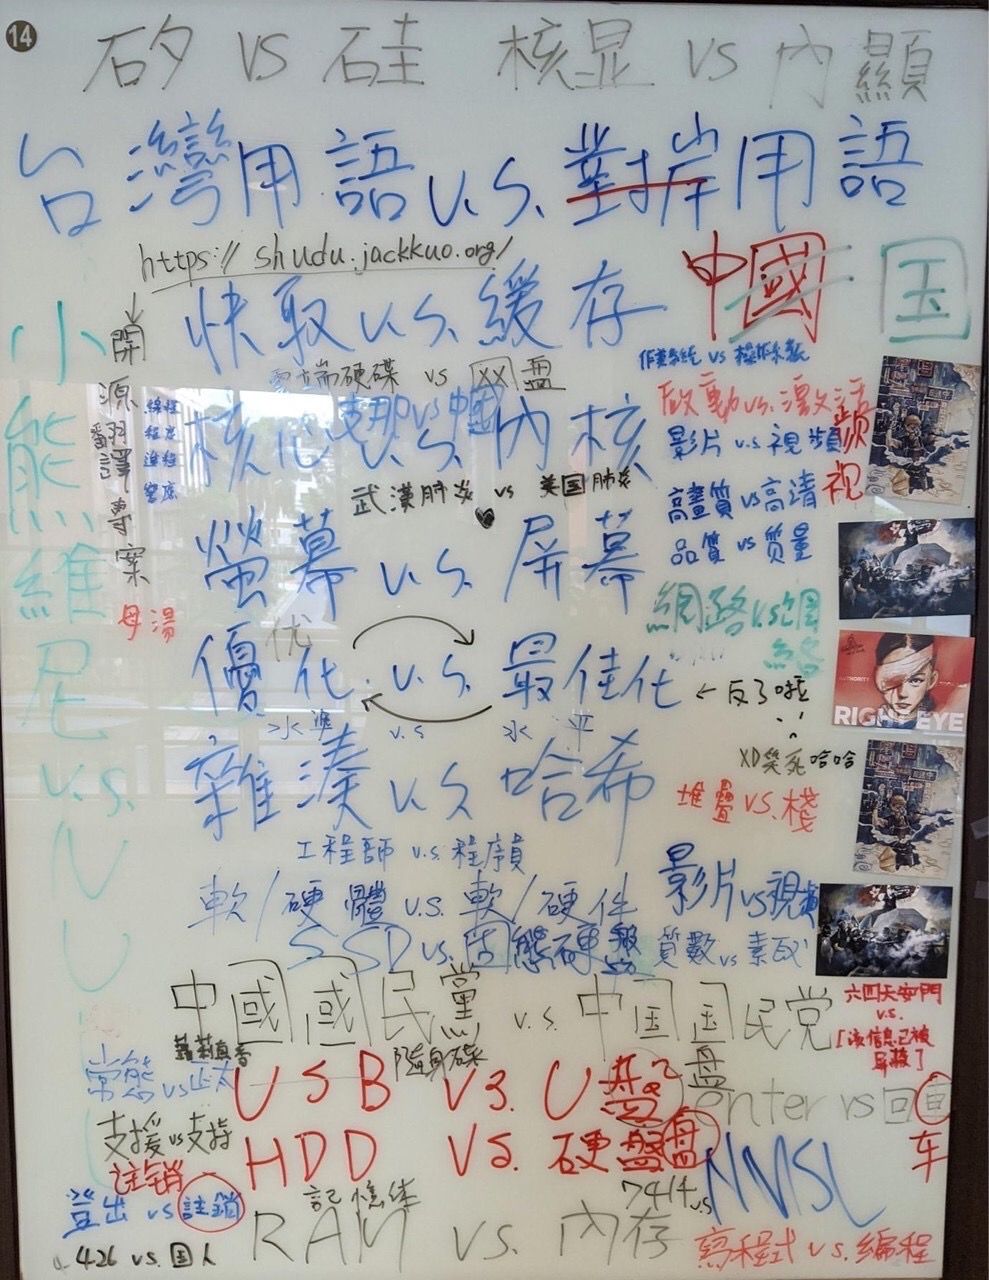 14
矽 VS 硅 核显 VS 內顯
台灣用語 v.s. 對岸用語
https://shudu.jackkuo.org/
中國 国
快取 v.s. 緩存
作業系統 vs 操作系統
雲端硬碟 vs XX盤
支那 vs 中國
核心 v.s. 內核
影片 v.s. 視頻
频
视
武漢肺炎 vs 美国肺炎
高畫質 vs 高清
品質 vs 質量
螢幕 v.s. 屏幕
網路 vs 網絡
优
優化 v.s. 最佳化
←反了啦
水準 v.s 水平
XD笑死哈哈
雜湊 v.s. 哈希
堆疊 vs. 棧
工程師 v.s. 程序員
軟/硬體 v.s. 軟/硬件
影片 vs 視頻
SSD vs. 固態硬盤
質數 vs 素数
中國國民黨 v.s. 中国国民党
六四天安門
v.s.
「該信息已被
屏蔽了
蘿莉真香
隨身碟
常態 vs 正太
USB vs. U盤?
盘
enter vs 回車
车
支援 vs 支持
HDD vs. 硬盤
盘
NMSL
7414 v.s
註销
登出 vs 註銷
記憶体
RAM vs. 內存
寫程式 vs. 編程
426 vs. 国人
小熊維尼 v.s.
開源翻譯專案
母湯
線程
程序
進程
AUTHORITY
RIGHT EYE